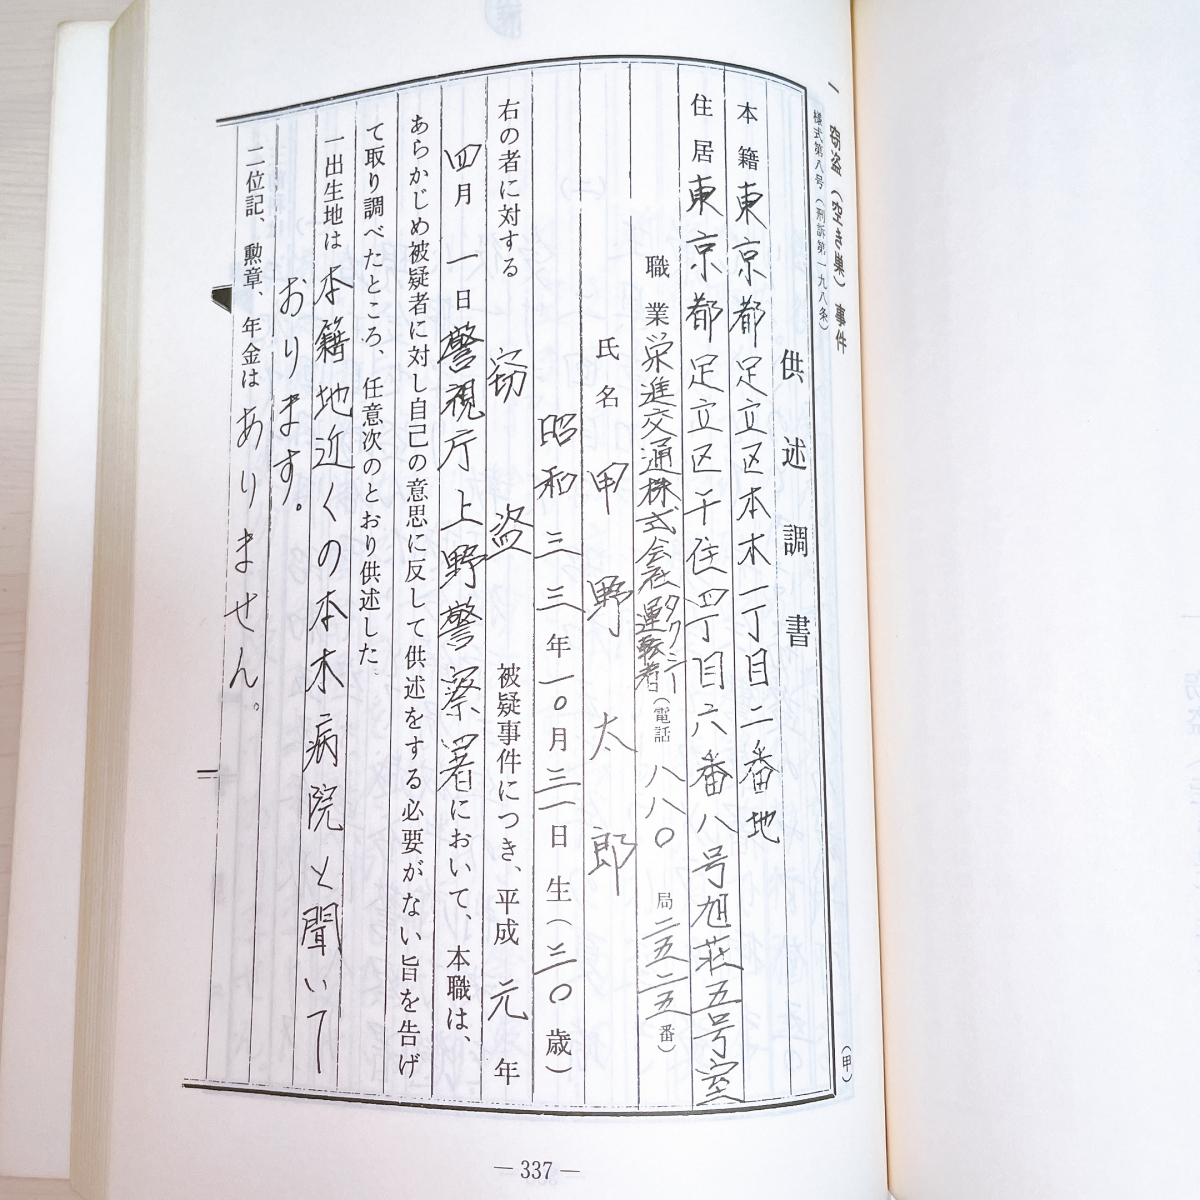 一 窃盗(空き巣)事件
様式第八号(刑訴第一九八条)
(甲)
供述調書
本籍 東京都足立区本木一丁目二番地
住居 東京都足立区千住四丁目六番八号旭荘五号室
職業 栄進交通株式会社タクシー運転者(電話 八八〇局二五二五番)
氏名 甲野太郎
昭和三三年一〇月三一日生(三〇歳)
右の者に対する 窃盗 被疑事件につき、平成元年
四月一日警視庁上野警察署において、本職は、
あらかじめ被疑者に対し自己の意思に反して供述をする必要がない旨を告げ
て取り調べたところ、任意次のとおり供述した。
一出生地は本籍地近くの本木病院と聞いて
おります。
二位記、勲章、年金はありません。
― 337 ―